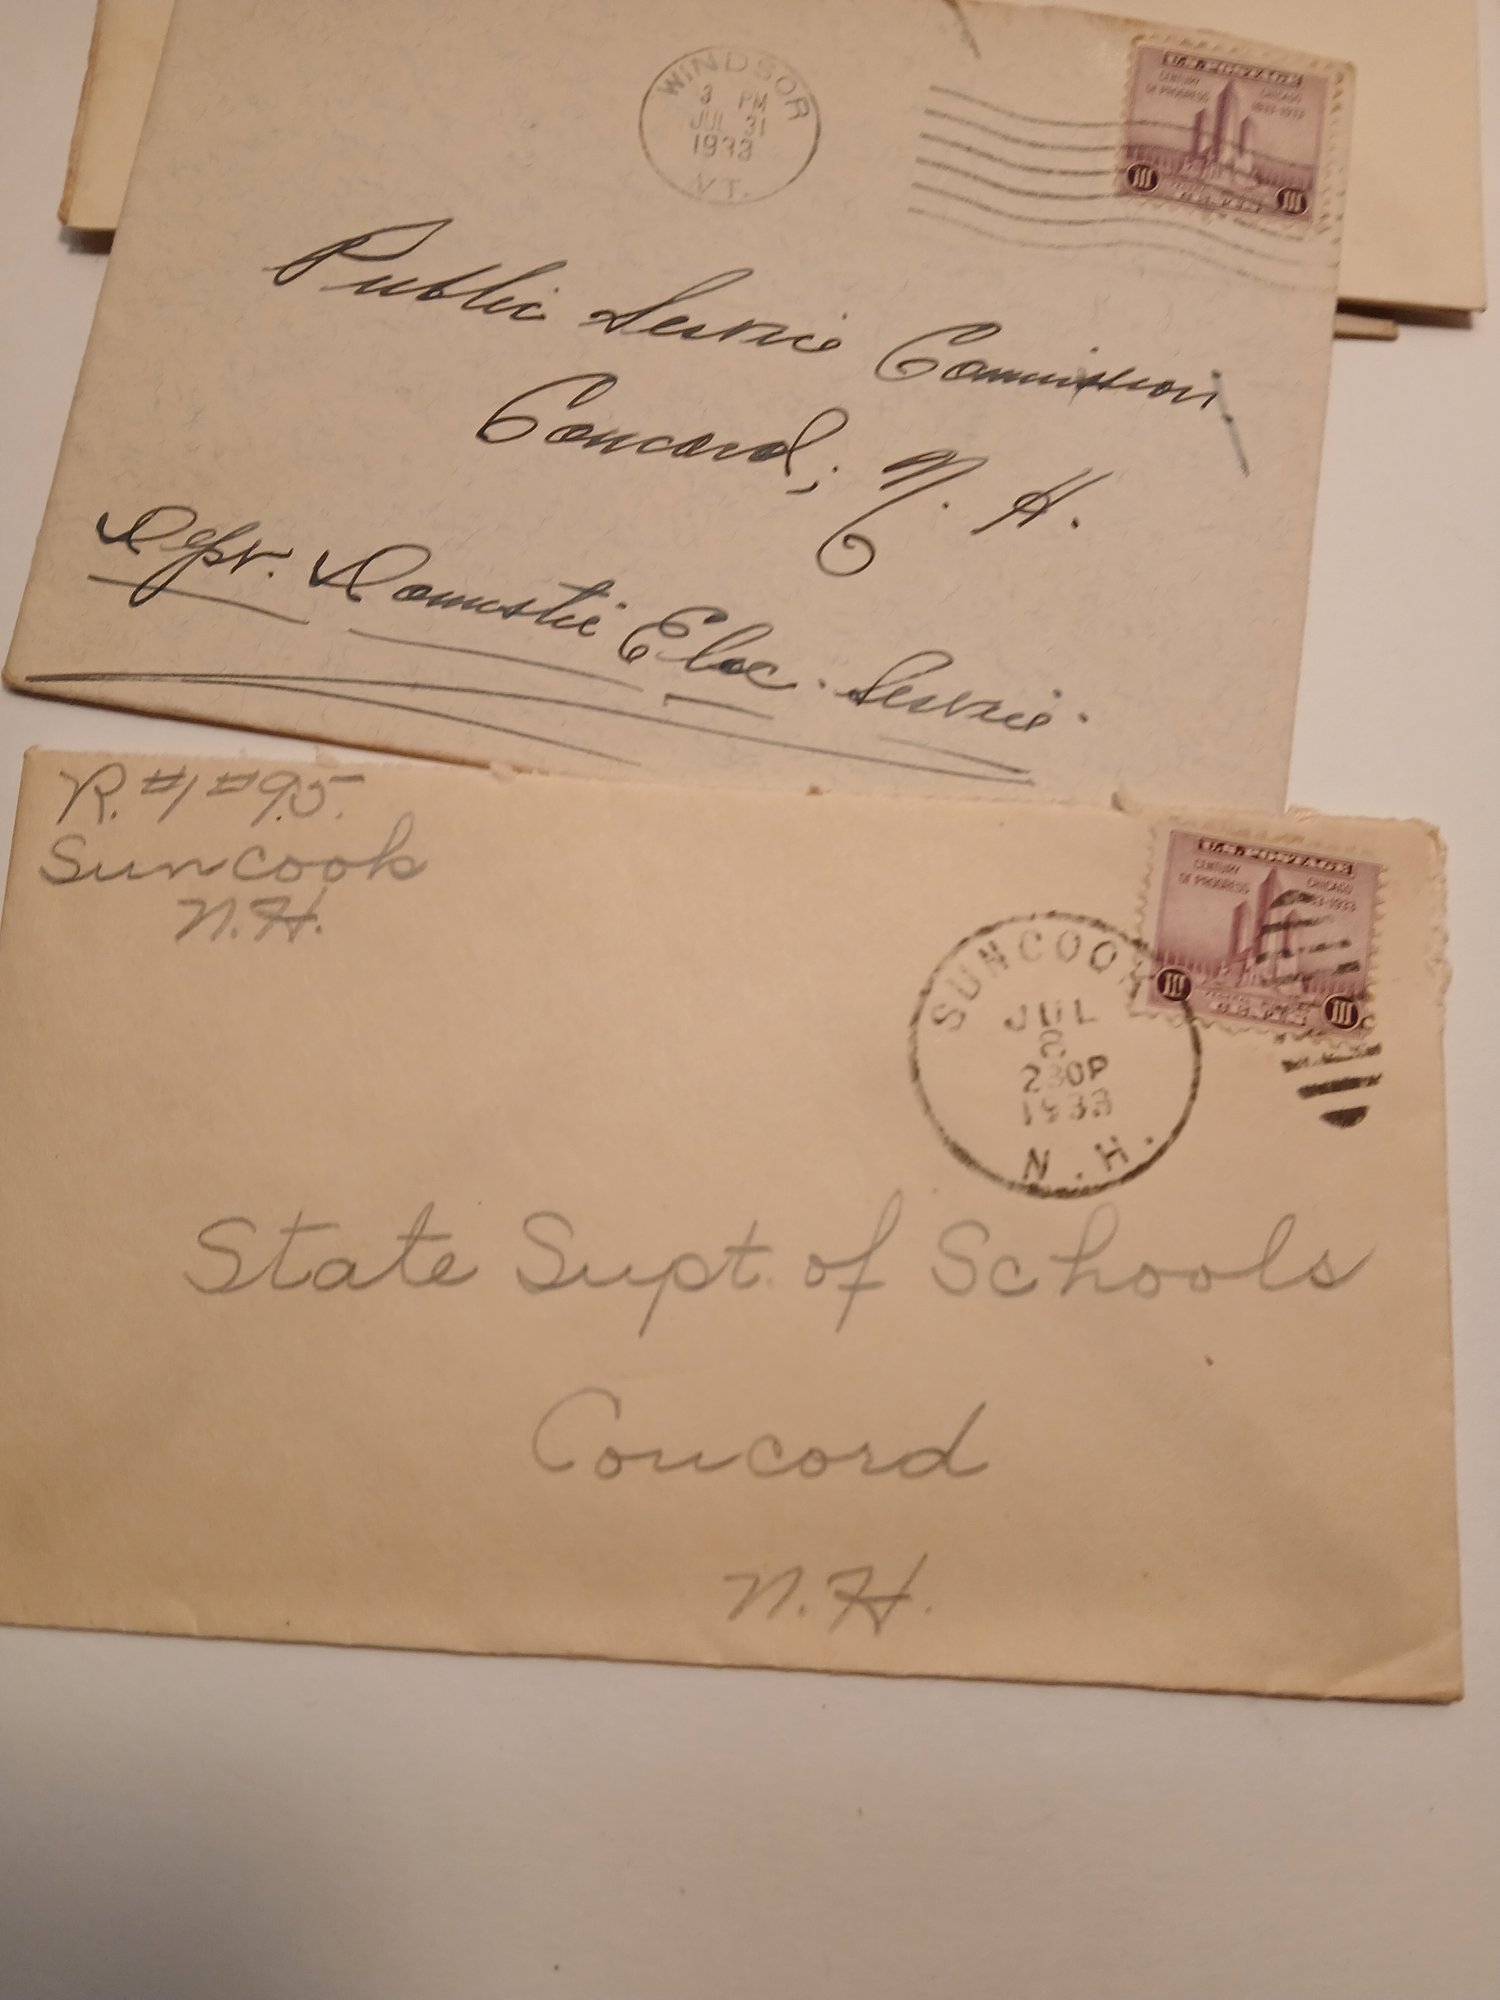 WINDSOR
3 PM
JUL 31
1933
VT.
U.S. POSTAGE
CENTURY OF PROGRESS
CHICAGO 1833-1933
III III
CENTS
Public Service Commission,
Concord, N. H.
Dept. Domestic Elec. Service.
R. #1 #95.
Suncook
N.H.
U.S. POSTAGE
CENTURY OF PROGRESS
CHICAGO 1833-1933
III III
CENTS
SUNCOOK
JUL
230P
1933
N.H.
State Supt. of Schools
Concord
N.H.